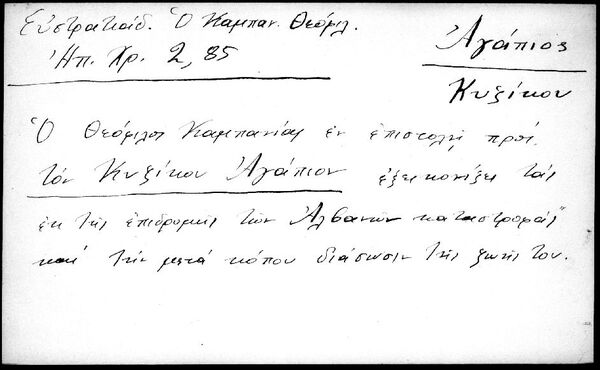 Εὐστρατιάδ. Ὁ Καμπαν. Θεόφιλ.
Ἠπ. Χρ. 2, 85
Ἀγάπιος
Κυζίκου
Ὁ Θεόφιλος Καμπανίας ἐν ἐπιστολῇ πρός
τόν Κυζίκου Ἀγάπιον ἐξεικονίζει τάς
ἐκ τῆς ἐπιδρομῆς τῶν Ἀλβανῶν καταστροφάς
καί τήν μετά κόπου διάσωσιν τῆς ζωῆς του.